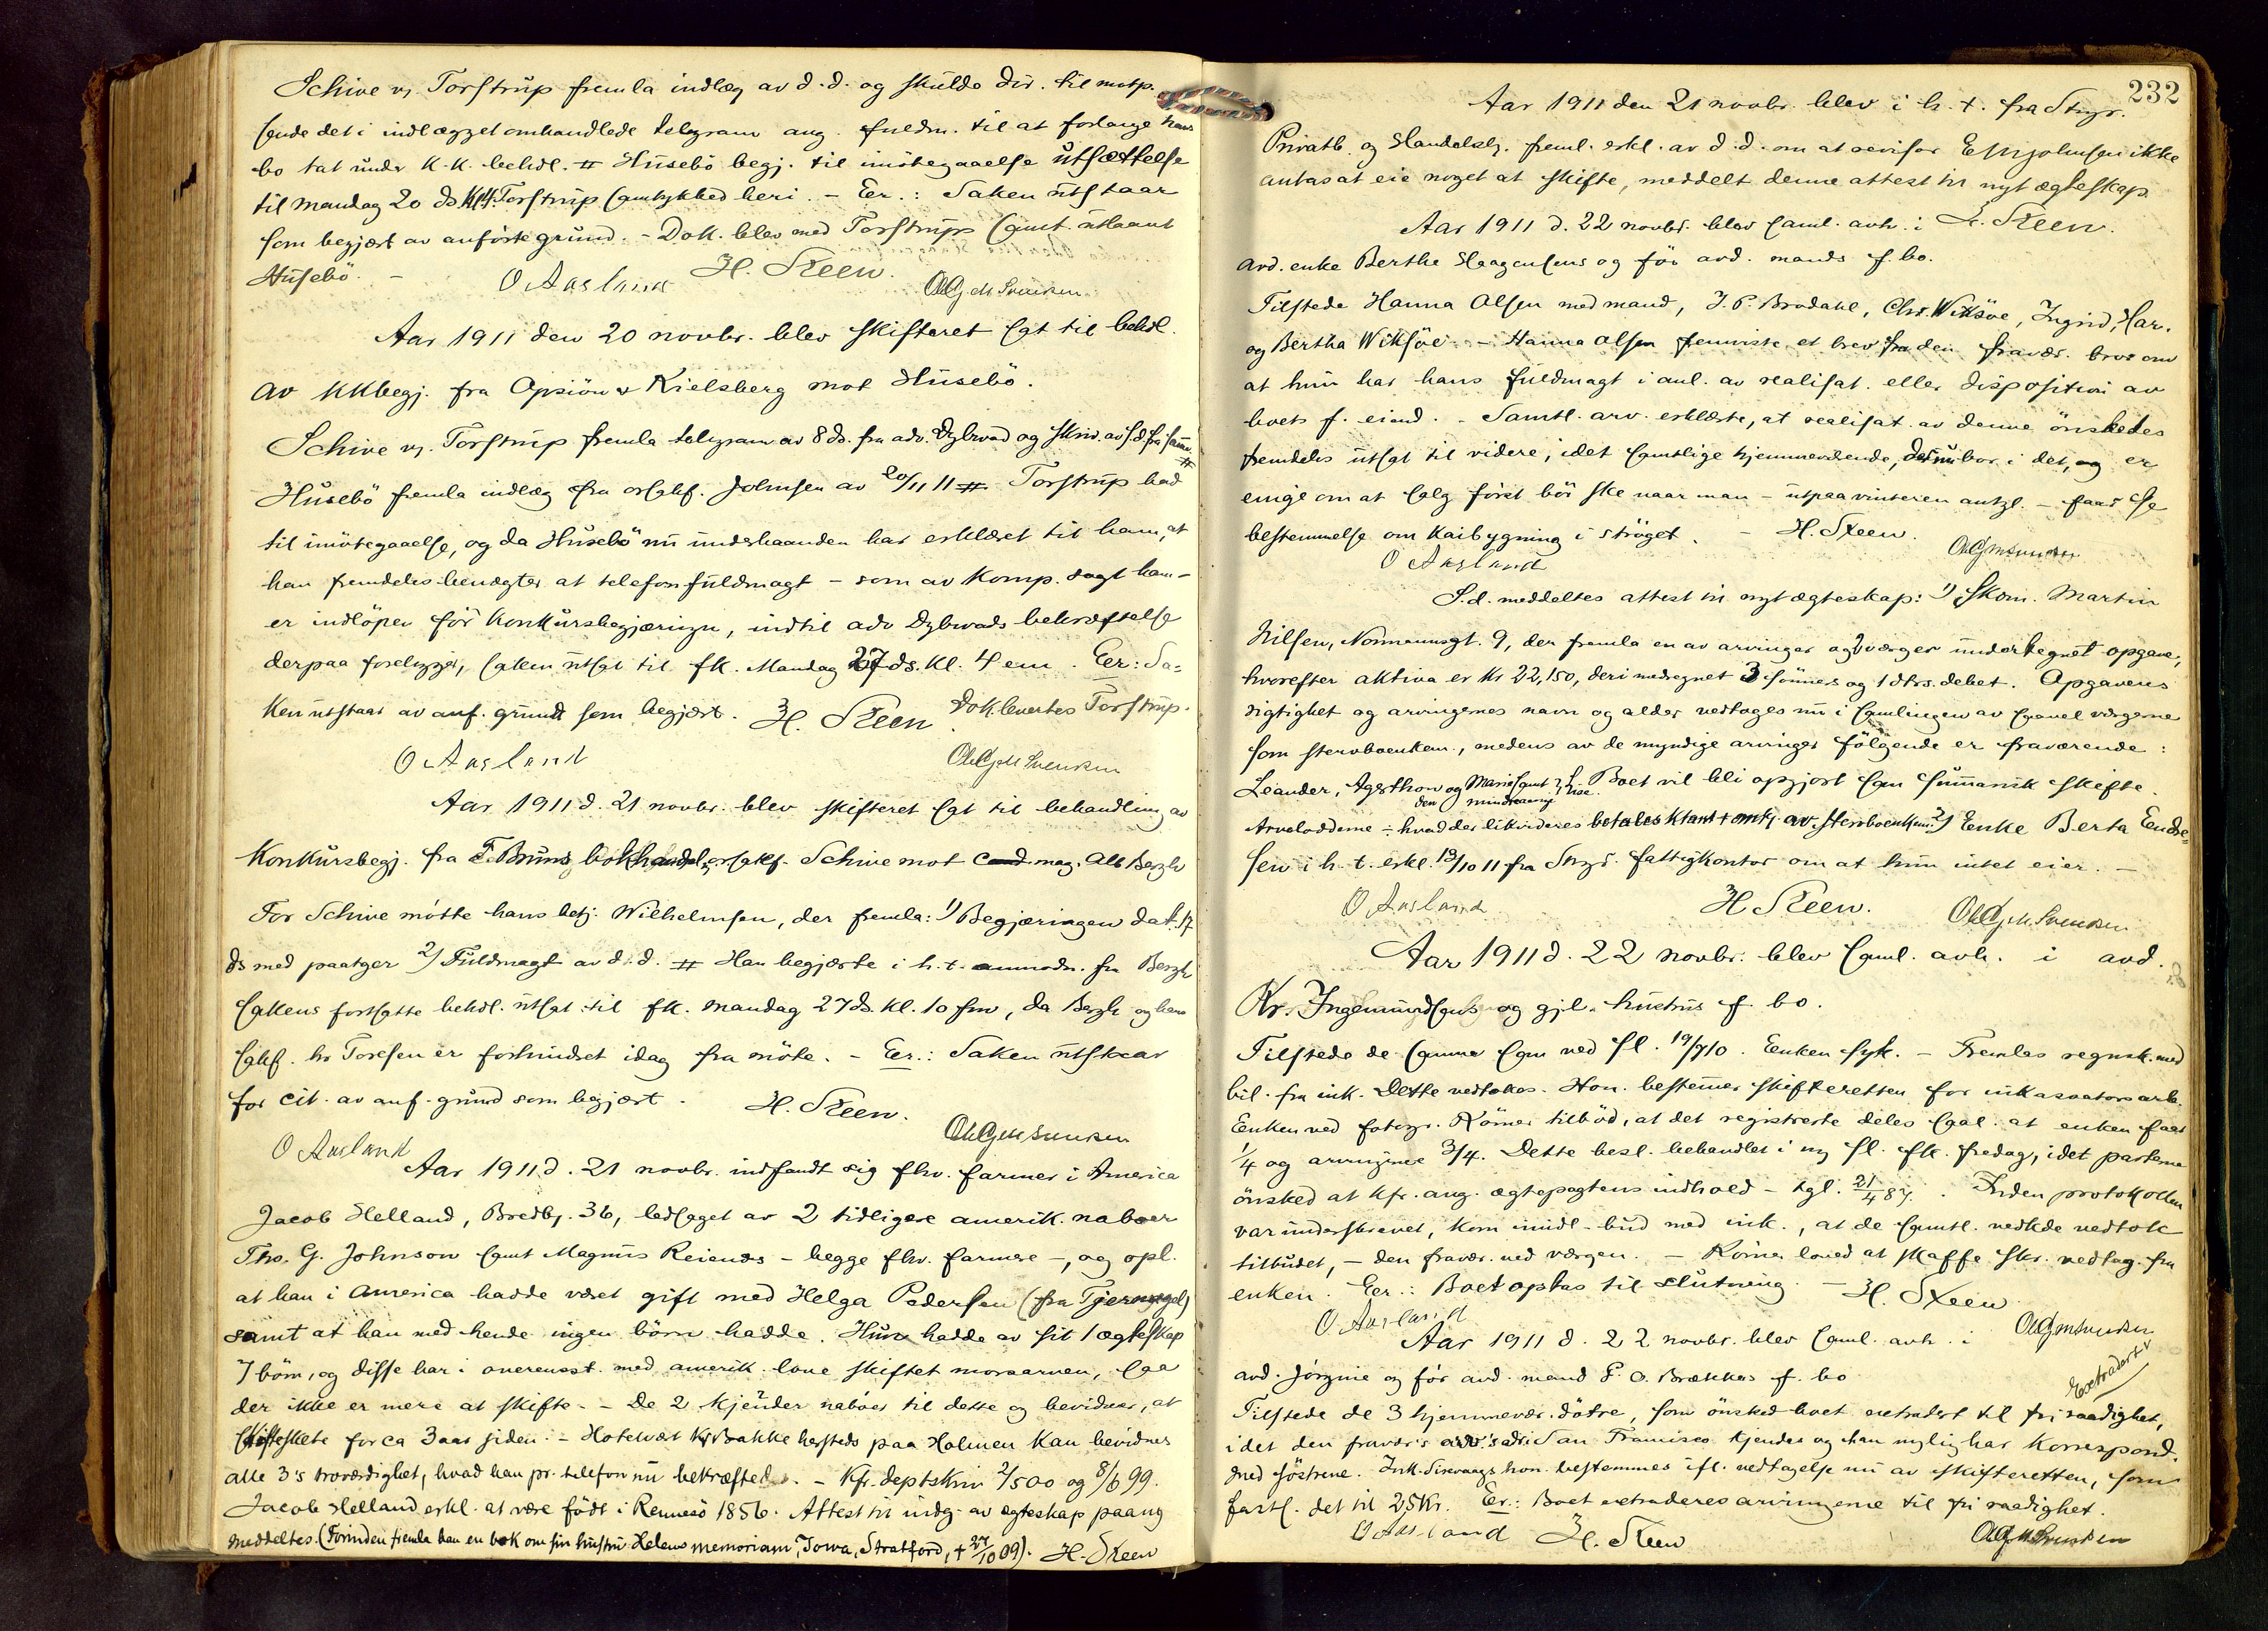 Schive v. Torstrup fremla indlæg av d.d. og skulde dir. til motp.
sende det i indlægget omhandlede telegram ang. fuldm. til at forlange hans
bo tat under K.K. behdl. # Husebö begj. til imötegaaelse utsættelse
til mandag 20 ds Kl 4. Torstrup samtykked heri. - Eer.: Saken utstaar
som begjært av anförte grund. - Dok. blev med Torstrups samt. utlaant
Husebö. -
O Ausland H. Steen.
Aar 1911 den 20 novbr. blev skifteret sat til behdl.
av KKbegj. fra & Kielsberg mot Husebö.
Schive v. Torstrup fremla telegram av 8 ds. fra adv. Dybwad og skriv. av s.d. fra samme #
Husebö fremla indlæg fra orsakf. Johnsen av 20/11 11 # Torstrup bad
til imötegaaelse, og da Husebö nu underhaanden har erklæret til ham, at
han fremdeles benægter at telefonfuldmagt - som av Komp. sagt ham -
er indlöpen för Konkursbegjæringen, indtil adv Dybwads bekræftelse
derpaa foreligger, saken utsat til fk. Mandag 27 ds. Kl. 4 em. Eer: Sa=
ken utstaar av anf. grund som begjært. H. Steen. Dok. levertes Torstrup.
O Ausland
Aar 1911 d. 21 novbr. blev skifteret sat til behandling av
Konkursbegj. fra F. Bruns bokhandel, orsakf. Schive mot cand. mag. Alb Bergh
For Schive mötte hans betj. Wilhelmsen, der fremla: 1) Begjæringen dat. 17
ds med paategn 2) Fuldmagt av d.d. # Han begjærte i h.t. anmodn. fra Bergh
sakens fortsatte behdl. utsat til fk. mandag 27 ds. kl. 10 fm, da Bergh og hans
sakf. hr Toresen er forhindret idag fra möte. - Eer.: Saken utstaar
for cit. av anf. grund som begjært. H. Steen.
O Ausland
Aar 1911 d. 21 novbr. indfandt sig fhv. farmer i America
Jacob Helland, Bredbg. 36, ledsaget av 2 tidligere amerik. naboer
Tho. G. Johnson samt Magnus Reienæs - begge fhv. farmere -, og opl.
at han i America hadde været gift med Helga Pedersen (fra Tjernagel)
samt at han med hende ingen börn hadde. Hun hadde av sit 1 ægteskap
7 börn, og disse har i overensst. med amerik. love skiftet morsarven, saa
der ikke er mere at skifte. - De 2 kjender naboer til dette og bevidner, at
skiftet skete for ca 3 aar siden. - Hotelvært Bakke hersteds paa Holmen kan bevidnes
alle 3's troværdighet, hvad han pr. telefon nu bekræfted. - Kfr. deptskriv 2/5 00 og 8/6 99.
Jacob Helland erkl. at være född i Rennesö 1856. Attest til indg. av ægteskap paany
meddeltes. (Forinden fremla han en bok om sin hustru Helens memoriam, Iowa, Stratford, † 27/10 09). H. Steen
232
Aar 1911 den 21 novbr. blev i h.t. fra Stvgr.
Privatb. og Handelsb. freml. erkl. av d.d. om at revisor E Johnsen ikke
antas at eie noget at skifte, meddelt denne attest til nyt ægteskap.
H. Steen.
Aar 1911 d. 22 novbr. blev saml. avh. i
avd. enke Berthe Haagensens og för avd. mands f. bo.
Tilstede Hanna Olsen med mand, J. P. Brodahl, Chr. Wiksöe, Ingrid, Har.
og Bertha Wiksöe. - Hanna Olsen fremviste et brev fra den fravær. bror om
at hun har hans fuldmagt i anl. av realisat. eller disposition av
boets f. eiend. - Samtl. arv. erklærte, at realisat. av denne önskedes
fremdeles utsat til videre, idet samtlige hjemmeværende, der nu bor i det, og er
enige om at salg först bör ske naar man - utpaa vinteren antgl. - faar se
bestemmelse om Kaibygning i ströget. - H. Steen.
O Ausland
S.d. meddeltes attest til nyt ægteskap: 1) Skom. Martin
Nilsen, Normannsgt. 9, der fremla en av arvinger og værger undertegnet opgave,
hvorefter aktiva er Kr 22,150, deri medregnet 3 sönners og 1 dtrs. debet. Opgavens
rigtighet og arvingernes navn og alder vedtoges nu i samlingen av saavel værgerne
som stervboenken, medens av de myndige arvinger fölgende er fraværende:
Leander, og Marie samt Lise. Boet vil bli opgjort som summarisk skifte.
den mindreaarige
Arvelodderne ÷ hvad der likvideres betales ktant + omk. av stervboenken. 2) Enke Berta Endre=
sen i h.t. erkl. 13/10 11 fra Stvgr. fattigkontor om at hun intet eier. -
O Ausland H Steen.
Aar 1911 d. 22 novbr. blev saml. avh. i avd.
Kr. Ingemundsens og gjl. hustrus f. bo.
Tilstede de samme som ved sl. 19/7 10. Enken syk. - Fremlas regnsk. med
bil. fra ink. Dette vedtokes. Hon. bestemmer skifteretten for inkassators arb.
Enken ved fotogr. Römer tilböd, at det registrerte deles saal. at enken faar
1/4 og arvingerne 3/4. Dette besl. behandlet i ny sl. fk. fredag, idet parterne
önsked at kfr. ang. ægtepagtens indhold - tgl. 21/4 87. Inden protokollen
var underskrevet, kom imidl. bud med ink., at de samtl. vedkde vedtok
tilbudet, - den fravær. ved værgen. - Römer loved at skaffe skr. vedtag. fra
enken. Eer.: Boet optas til slutning. - H. Steen
O Ausland
Aar 1911 d. 22 novbr. blev saml. avh. i
avd. Jörgine og för avd. mand O. Brekkas f. bo
Extradert
Tilstede de 3 hjemmevær. dötre, som önsked boet extradert til fri raadighet,
idet den fravær's adr. i San Francisco kjendes og han nylig har korrespond.
med söstrene. Ink. hon. bestemmes ifl. vedtagelse nu av skifteretten, som
fasts. det til 25 kr. Eer.: Boet extraderes arvingerne til fri raadighet.
O Ausland H. Steen